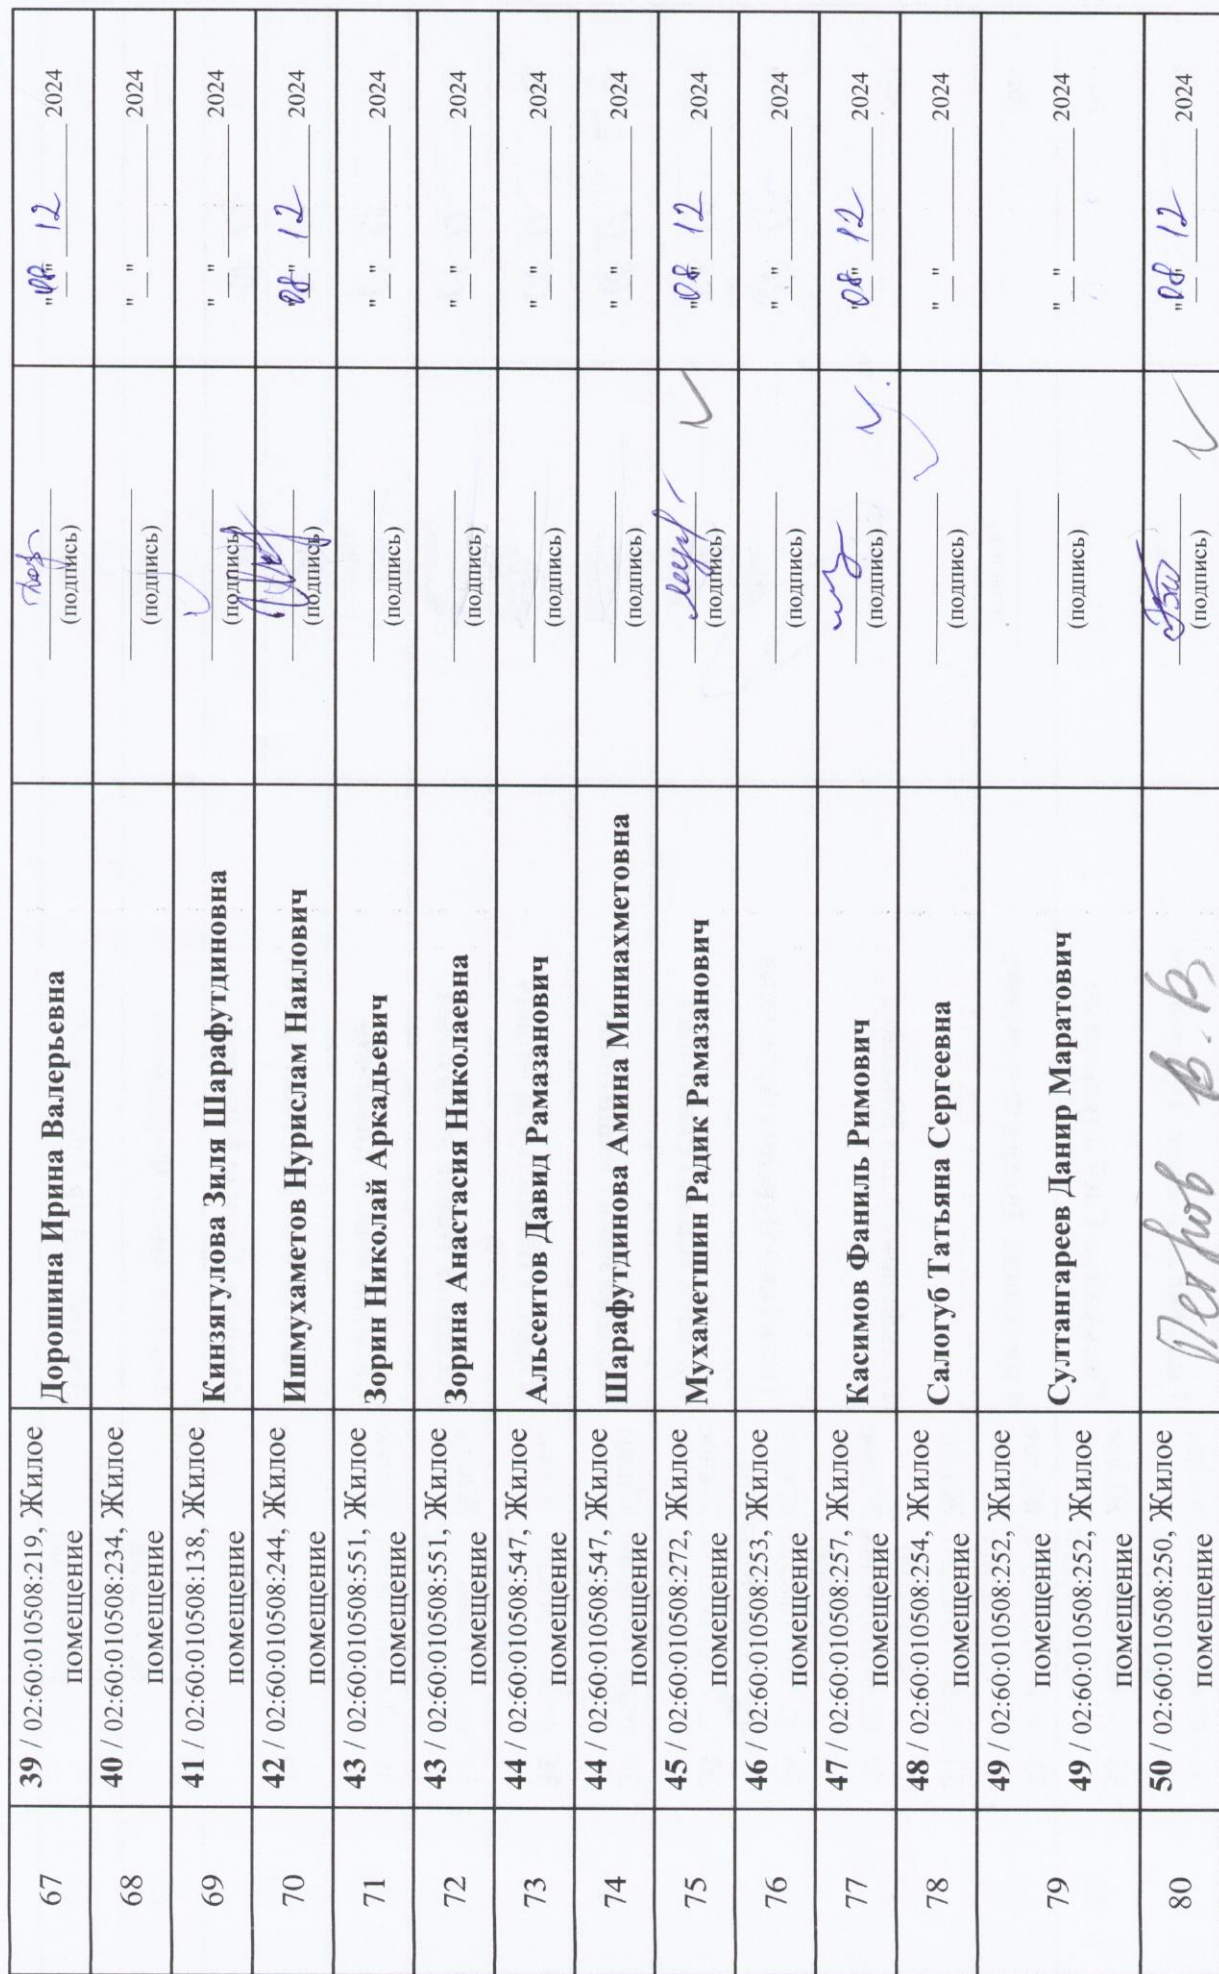 67 39 / 02:60:010508:219, Жилое помещение Дорошина Ирина Валерьевна (подпись) "08" 12 2024
68 40 / 02:60:010508:234, Жилое помещение (подпись) "__" 2024
69 41 / 02:60:010508:138, Жилое помещение Кинзягулова Зиля Шарафутдиновна (подпись) "__" 2024
70 42 / 02:60:010508:244, Жилое помещение Ишмухаметов Нурислам Наилович (подпись) "08" 12 2024
71 43 / 02:60:010508:551, Жилое помещение Зорин Николай Аркадьевич (подпись) "__" 2024
72 43 / 02:60:010508:551, Жилое помещение Зорина Анастасия Николаевна (подпись) "__" 2024
73 44 / 02:60:010508:547, Жилое помещение Альсеитов Давид Рамазанович (подпись) "__" 2024
74 44 / 02:60:010508:547, Жилое помещение Шарафутдинова Амина Миниахметовна (подпись) "__" 2024
75 45 / 02:60:010508:272, Жилое помещение Мухаметшин Радик Рамазанович (подпись) "08" 12 2024
76 46 / 02:60:010508:253, Жилое помещение (подпись) "__" 2024
77 47 / 02:60:010508:257, Жилое помещение Касимов Фаниль Римович (подпись) "08" 12 2024
78 48 / 02:60:010508:254, Жилое помещение Салогуб Татьяна Сергеевна (подпись) "__" 2024
79 49 / 02:60:010508:252, Жилое помещение
49 / 02:60:010508:252, Жилое помещение Султангареев Данир Маратович (подпись) "__" 2024
80 50 / 02:60:010508:250, Жилое помещение Петров В. В (подпись) "08" 12 2024